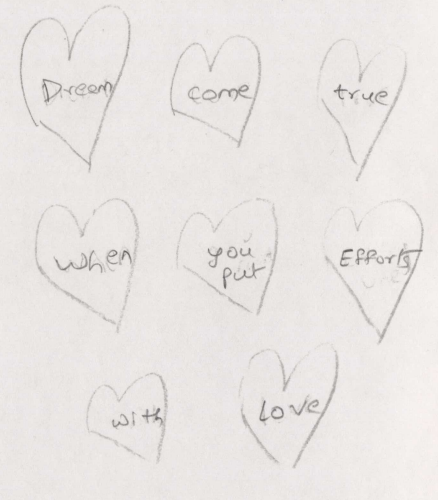 Dream come true
When you put Efforts
with Love